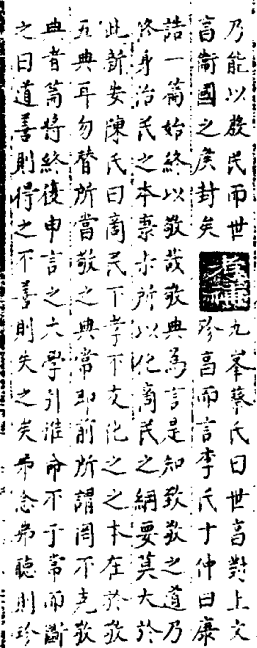 乃能以殷民而世
享衛國之侯封矣
九峯蔡氏曰世享對上文
殄享而言李氏十仲曰康
誥一篇始終以敬哉敬典為言是知致敬之道乃
修身治民之本亦所以化商民之綱要莫大於
此新安陳氏曰商民不孝不友化之之本在於敬
五典耳勿替所當敬之典常即前所謂罔不克敬
典者篇將終復申言之大學引惟命不于常而斷
之曰道善則得之不善則失之矣弗念弗聽則殄